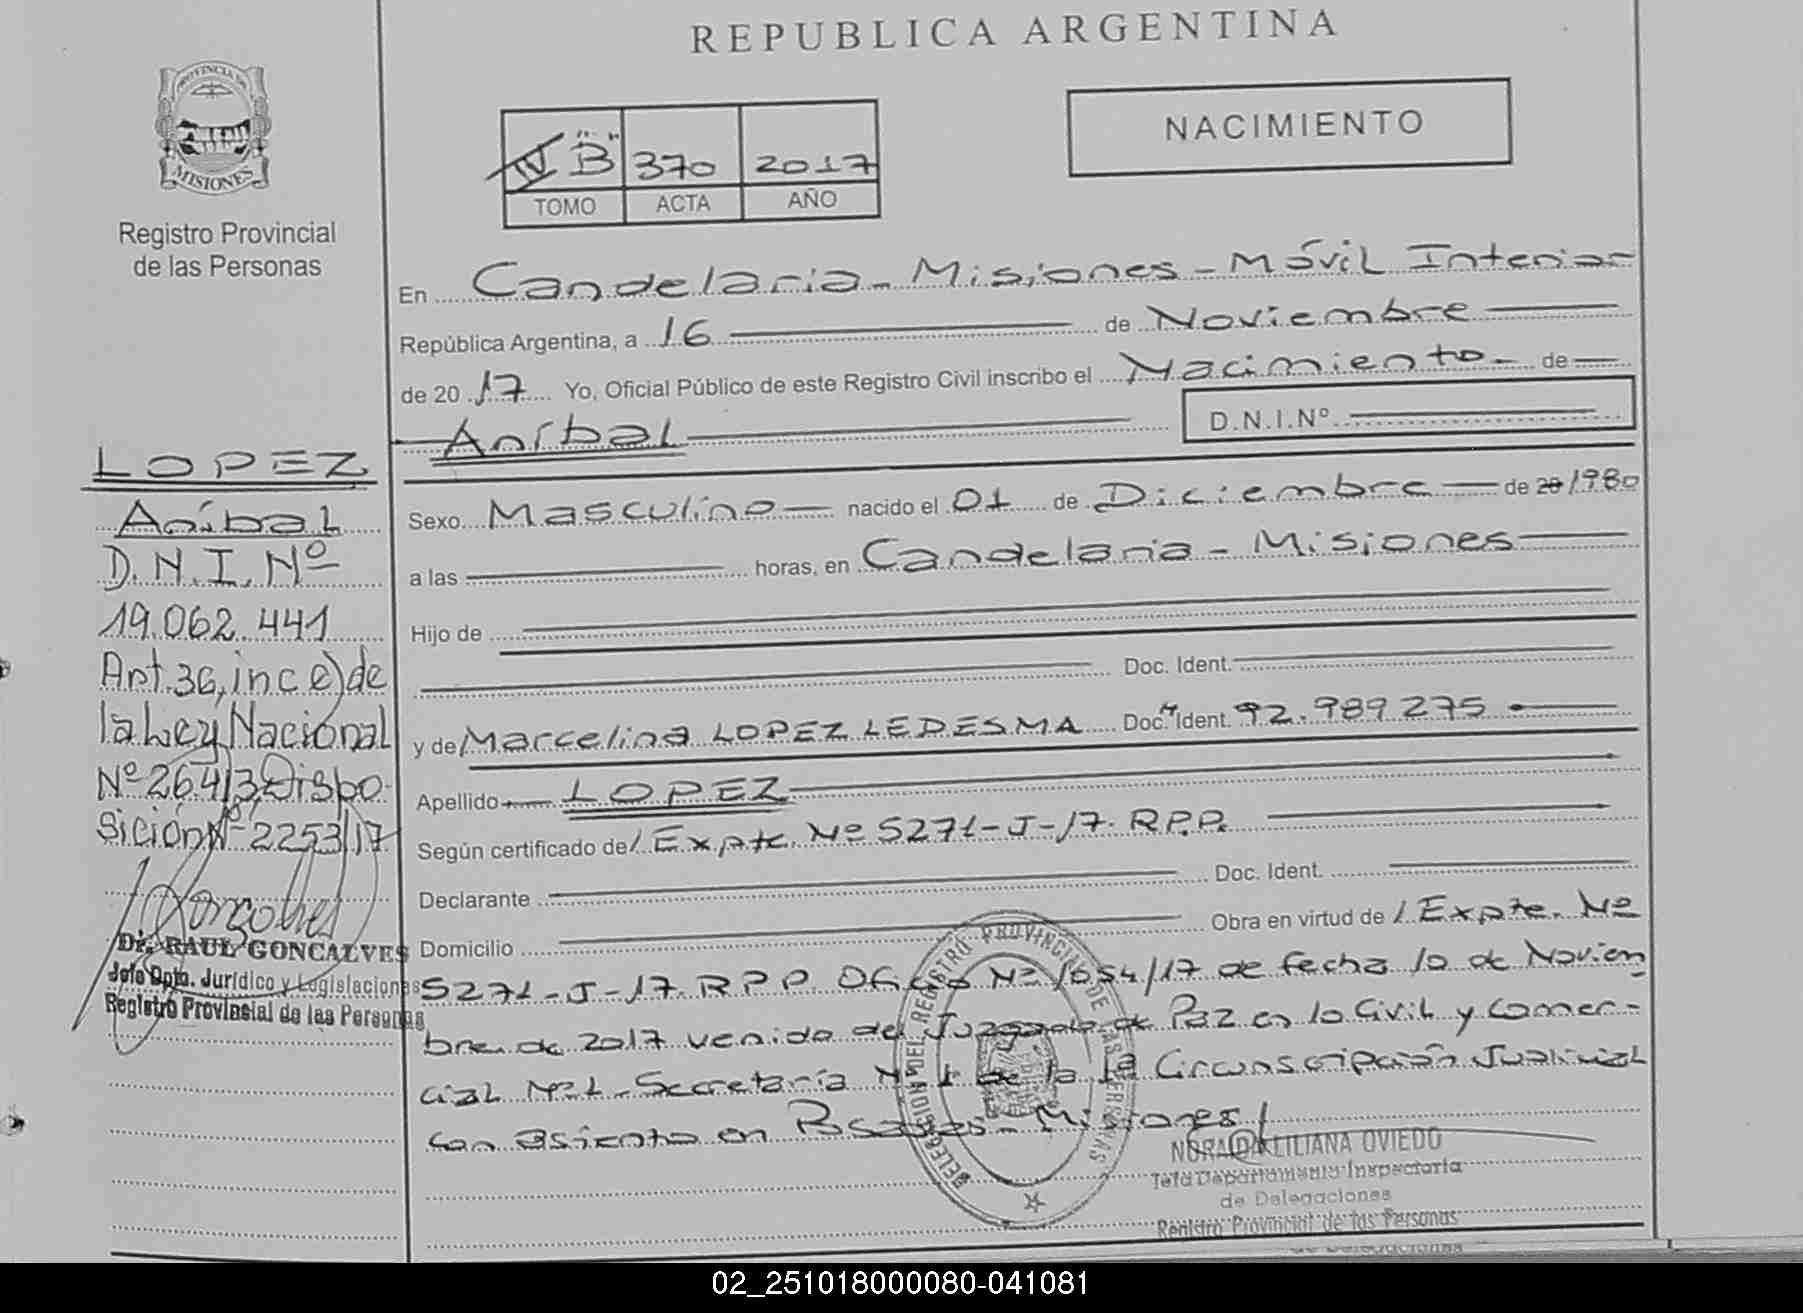 REPUBLICA ARGENTINA
NACIMIENTO
PROVINCIA DE
MISIONES
Registro Provincial
de las Personas
IV "B" 370 2017
TOMO ACTA AÑO
En Candelaria - Misiones - Móvil Interior
República Argentina, a 16 de Noviembre
de 20 17 Yo, Oficial Público de este Registro Civil inscribo el Nacimiento de
Aníbal D.N.I.Nº
LOPEZ
Aníbal
D.N.I.Nº
19.062.441
Art.36,inc c)de
la Ley Nacional
Nº 26413, Dispo
sición Nº 2253/17
Dr. RAUL GONCALVES
Jefe Dpto. Jurídico y Legislaciones
Registro Provincial de las Personas
Sexo Masculino nacido el 01 de Diciembre de 20 1980
a las horas, en Candelaria - Misiones
Hijo de
Doc. Ident.
y de Marcelina LOPEZ LEDESMA Doc. Ident. 92.989.275
Apellido LOPEZ
Según certificado de / Expte. Nº 5271-J-17. R.P.P.
Declarante Doc. Ident.
Domicilio Obra en virtud de / Expte. Nº
5271-J-17. R.P.P. Oficio Nº 1654/17 de fecha 10 de Noviem
bre de 2017 venido del Juzgado de Paz en lo Civil y Comer-
cial Nº 1 - Secretaría Nº 1 de la 1ª Circunscripción Judicial
con asiento en Posadas - Misiones/
DELEGACION DEL REGISTRO PROVINCIAL DE LAS PERSONAS
NORA LILIANA OVIEDO
Jefa Departamento Inspectoria
de Delegaciones
Registro Provincial de las Personas
de Delegaciones
02_251018000080-041081